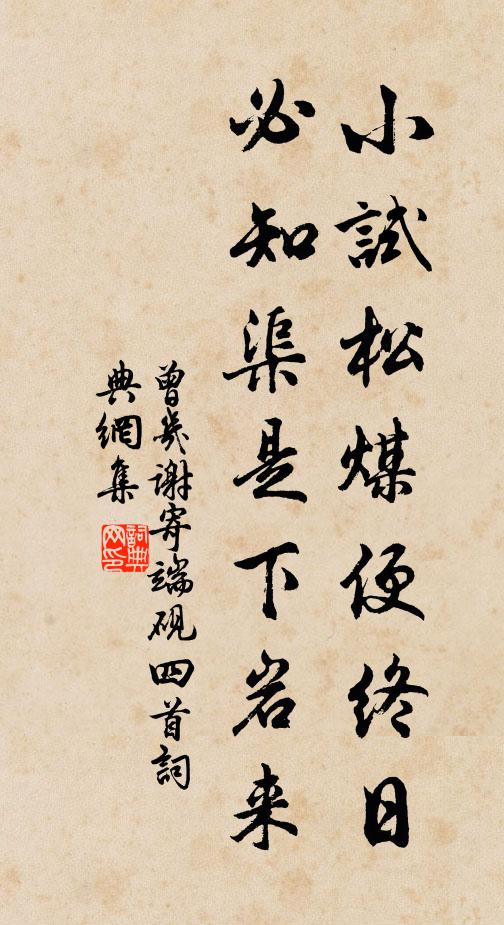 小試松煤便終日
必知渠是下岩来
曾幾謝寄端硯四首詞
典網集
詞典網印